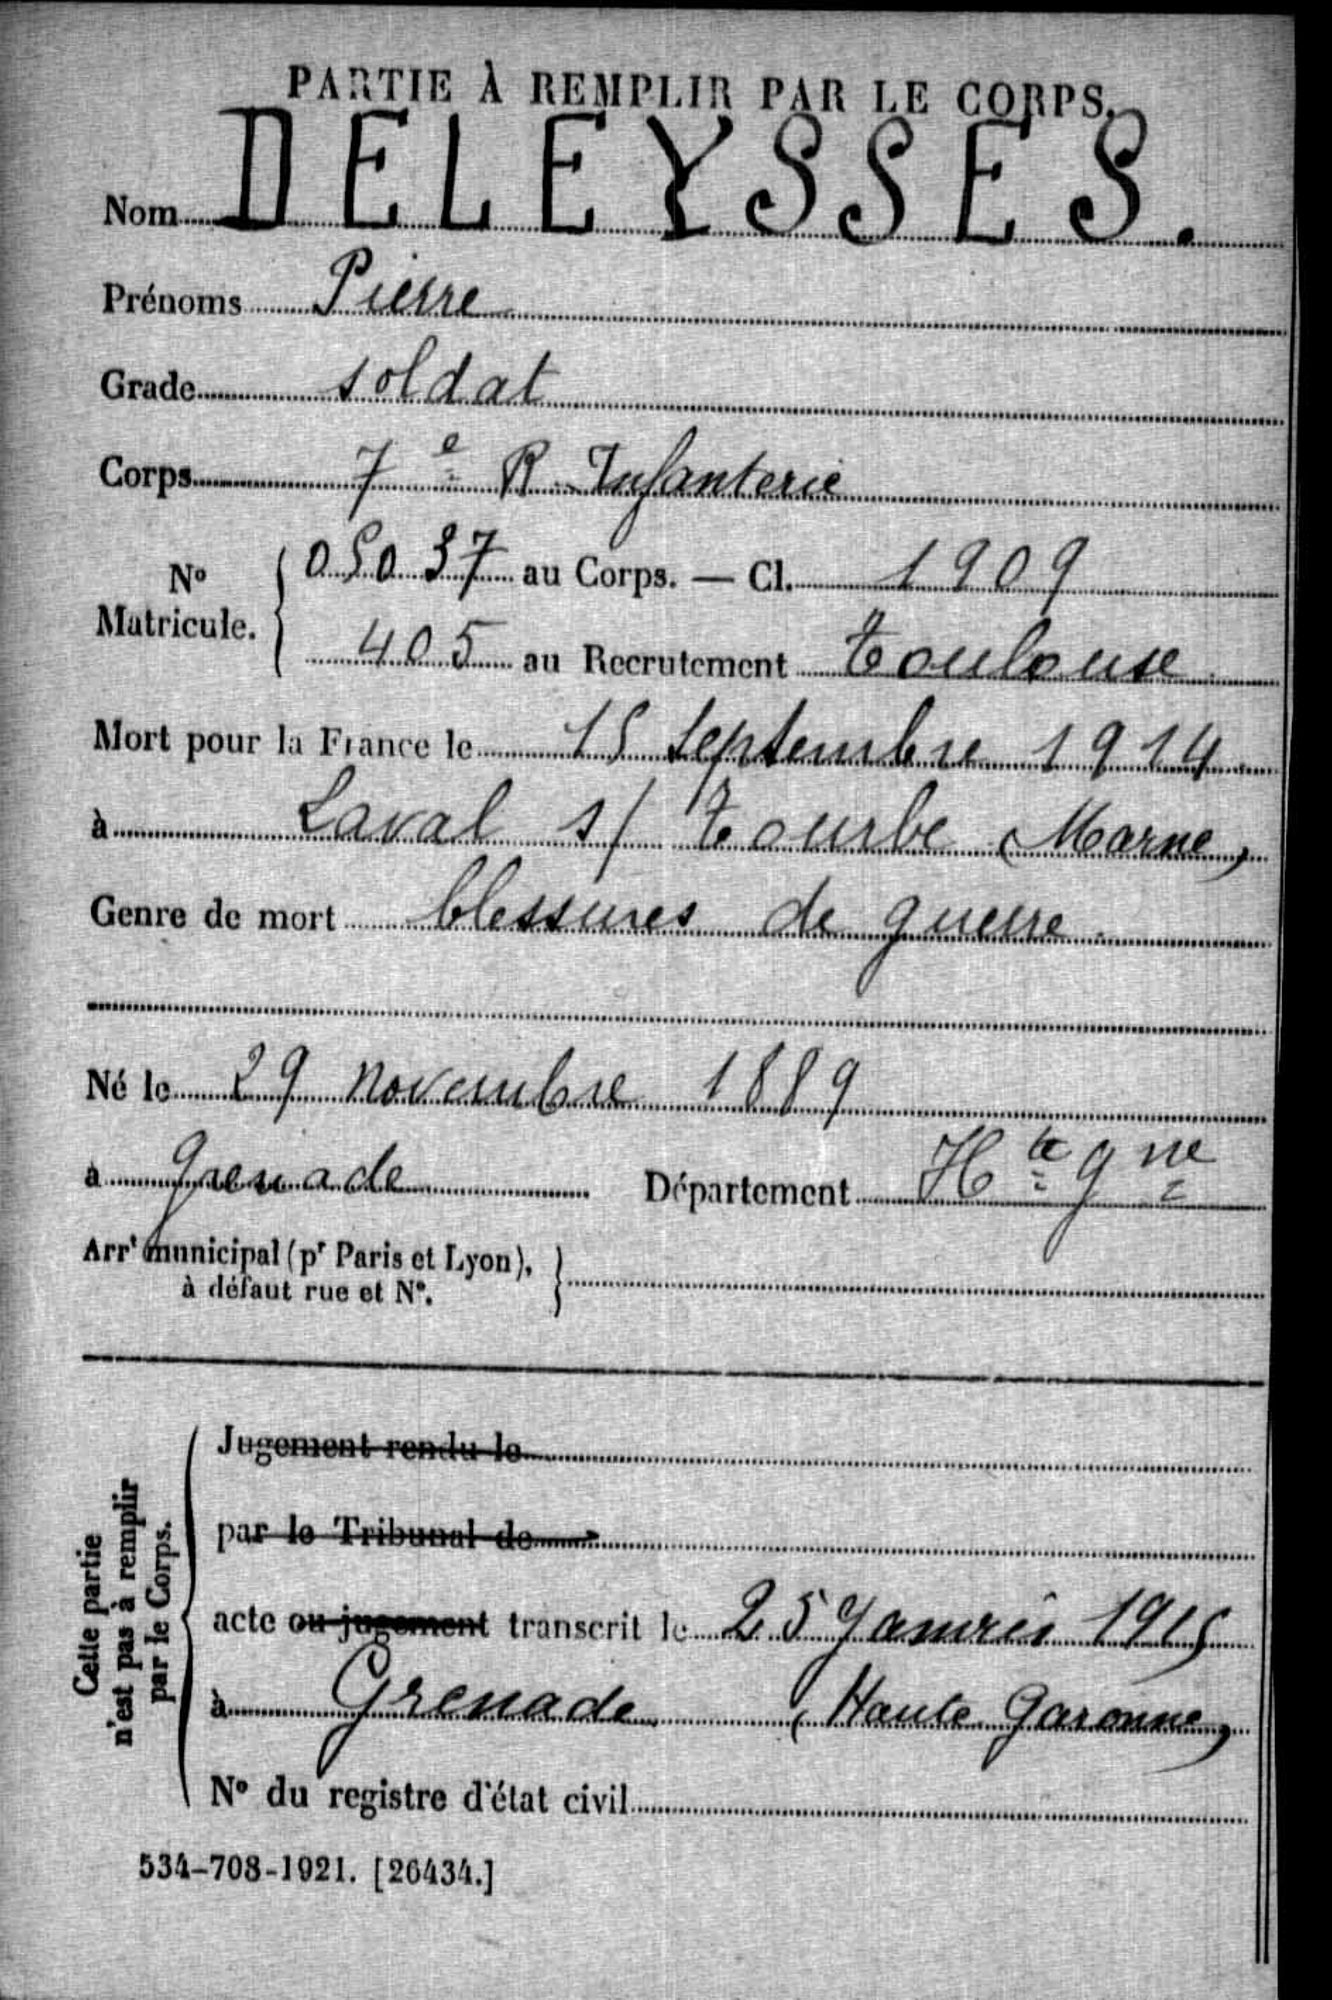 PARTIE À REMPLIR PAR LE CORPS.
Nom DELEYSSES.
Prénoms Pierre
Grade soldat
Corps 7e R. Infanterie
No Matricule. { 05037 au Corps. — Cl. 1909
405 au Recrutement Toulouse
Mort pour la France le 15 septembre 1914
à Laval s/ Tourbe (Marne)
Genre de mort blessures de guerre.
Né le 29 novembre 1889
à Grenade Département Hte Gne
Arrt municipal (pr Paris et Lyon), }
à défaut rue et No.
Cette partie
n'est pas à remplir
par le Corps.
Jugement rendu le
par le Tribunal de
acte ou jugement transcrit le 25 Janvier 1915
à Grenade (Haute Garonne)
No du registre d'état civil
534-708-1921. [26434.]